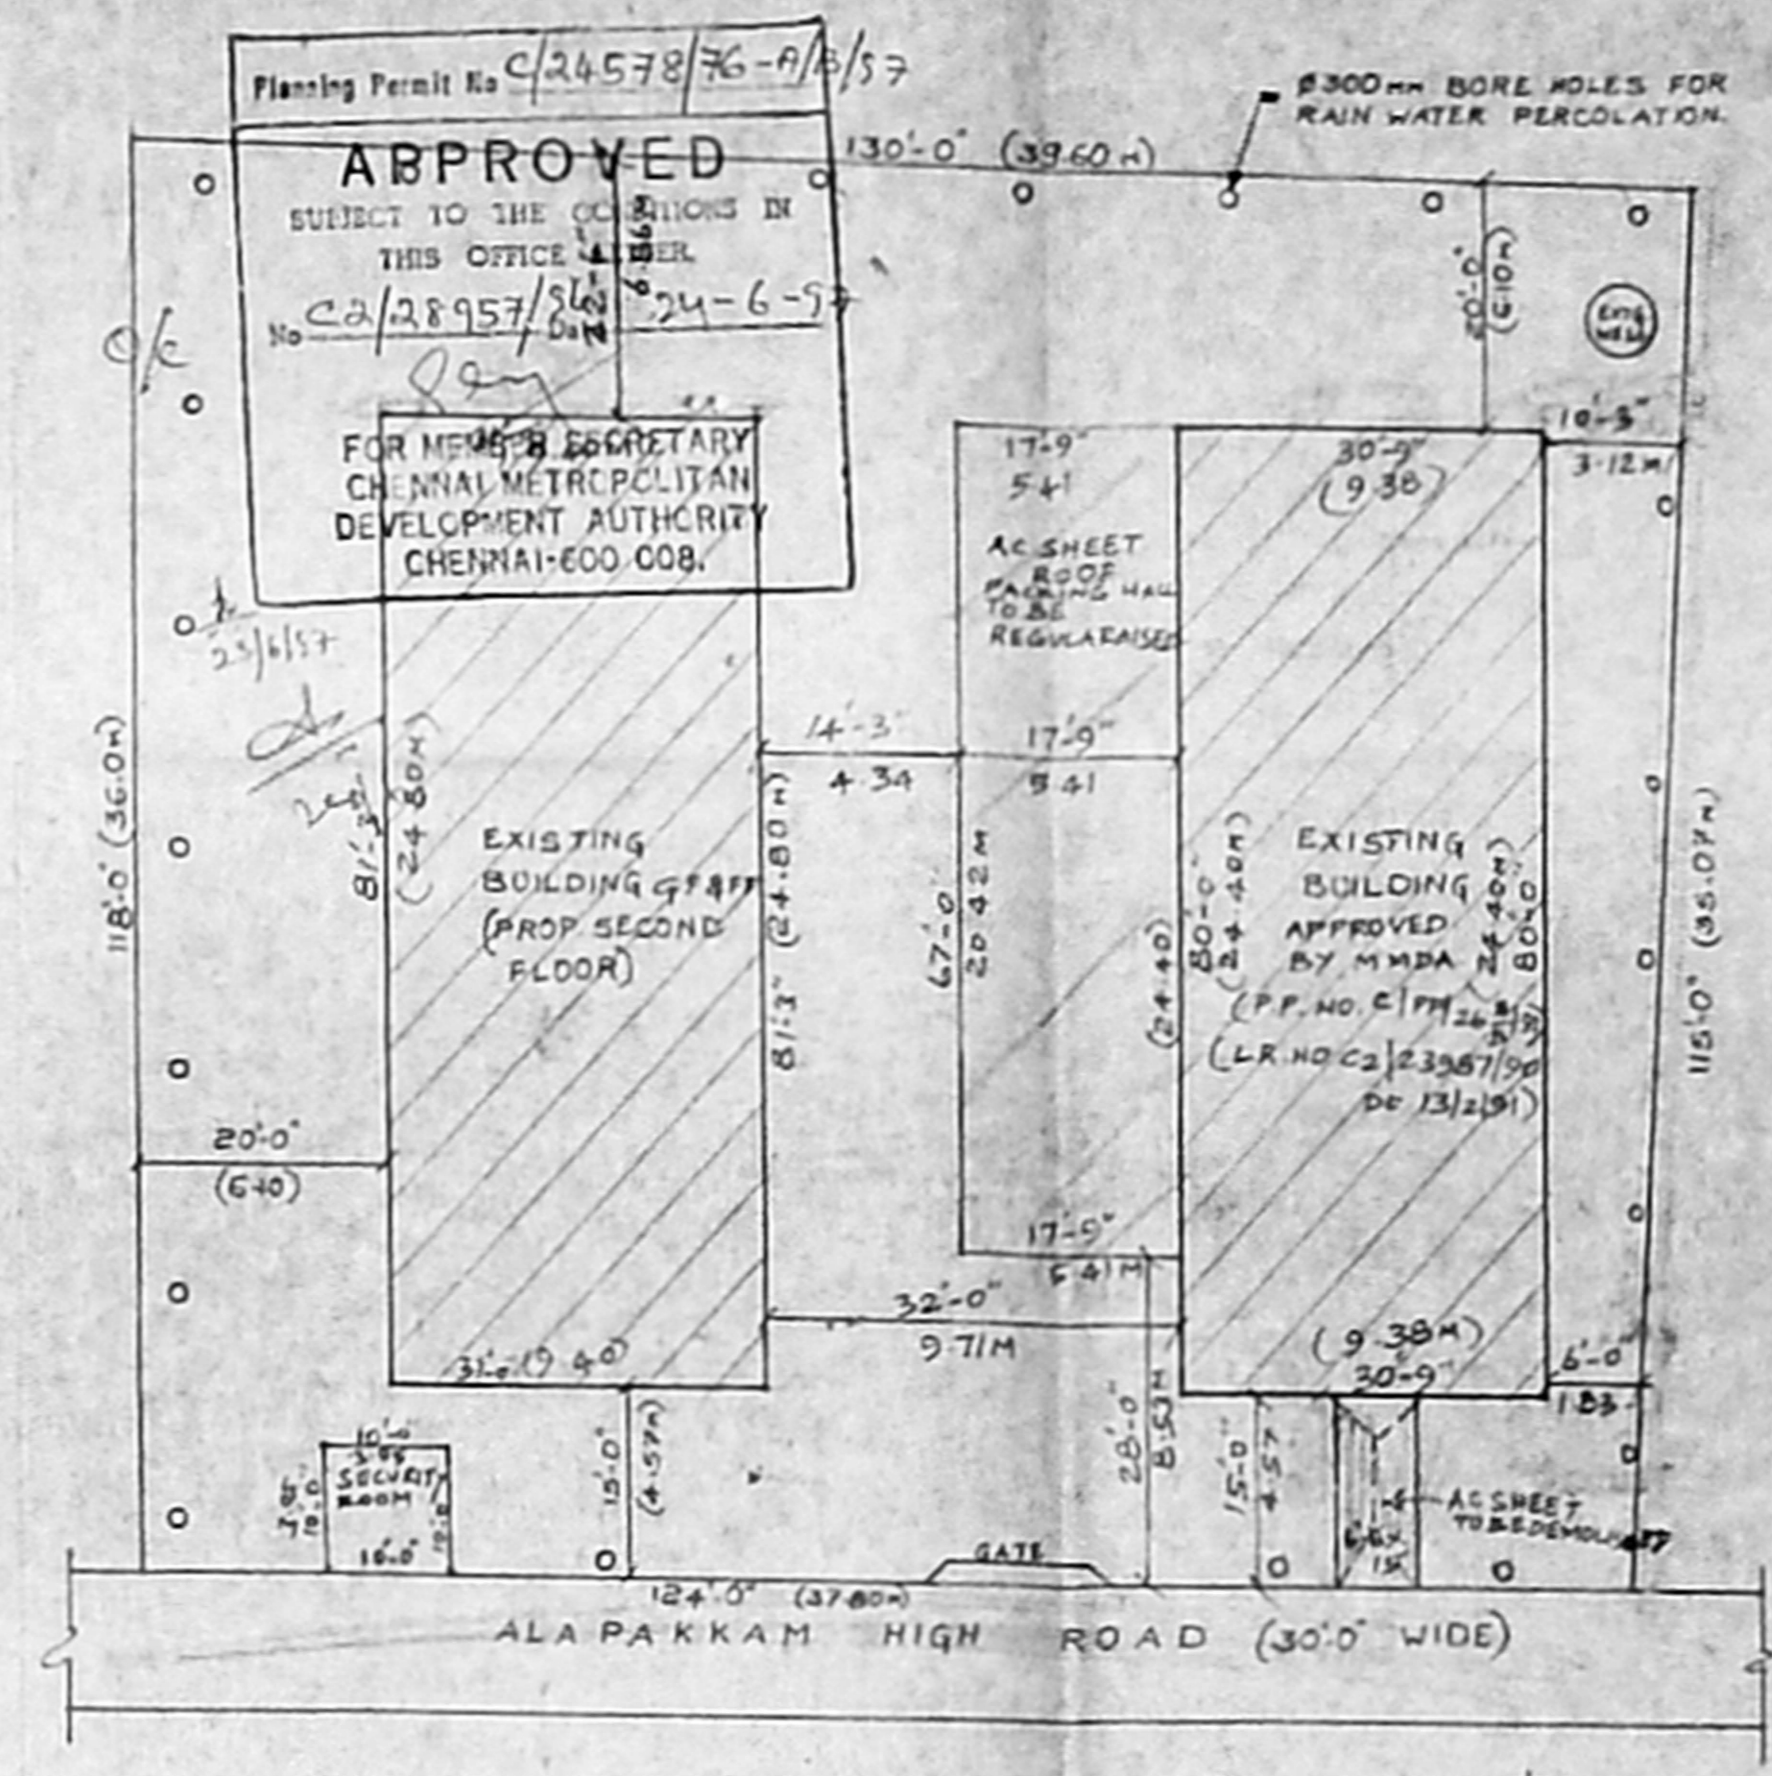 Planning Permit No C/24578/76-A/B/97
APPROVED
SUBJECT TO THE CONDITIONS IN
THIS OFFICE
No C2/28957/ 24-6-97
FOR MEMBER SECRETARY
CHENNAI METROPOLITAN
DEVELOPMENT AUTHORITY
CHENNAI-600 008.
Ø300mm BORE HOLES FOR
RAIN WATER PERCOLATION.
130'-0" (39.60 M)
O/C
20'-0"
(6.10M)
EXTG
WELL
10'-3"
3.12M
17'-9"
5.41
30'-9"
(9.38)
AC SHEET
ROOF
PACKING HALL
TO BE
REGULARAISED
23/6/97
118'-0" (36.0M)
81'-3"
(24.80M)
14'-3"
4.34
17'-9"
5.41
EXISTING
BUILDING GF&FF
(PROP SECOND
FLOOR)
81'-3" (24.80M)
67'-0"
20.42M
(24.40)
80'-0"
(24.40M)
EXISTING
BUILDING
APPROVED
BY MMDA
(24.40M)
80'-0"
(P.P. NO. C/PP/
(LR.NO C2/23987/90
DE 13/2/91)
115'-0" (35.07M)
20'-0"
(6.10)
17'-9"
5.41M
32'-0"
9.71M
31'-0 (9.40)
(9.38M)
30'-9"
6'-0"
1.83
SECURITY
ROOM
10'-0"
15'-0"
(4.57M)
28'-0"
8.53M
15'-0"
4.57
AC SHEET
TO BE DEMOLISHED
GATE
124'-0" (37.80M)
ALAPAKKAM HIGH ROAD (30'-0" WIDE)